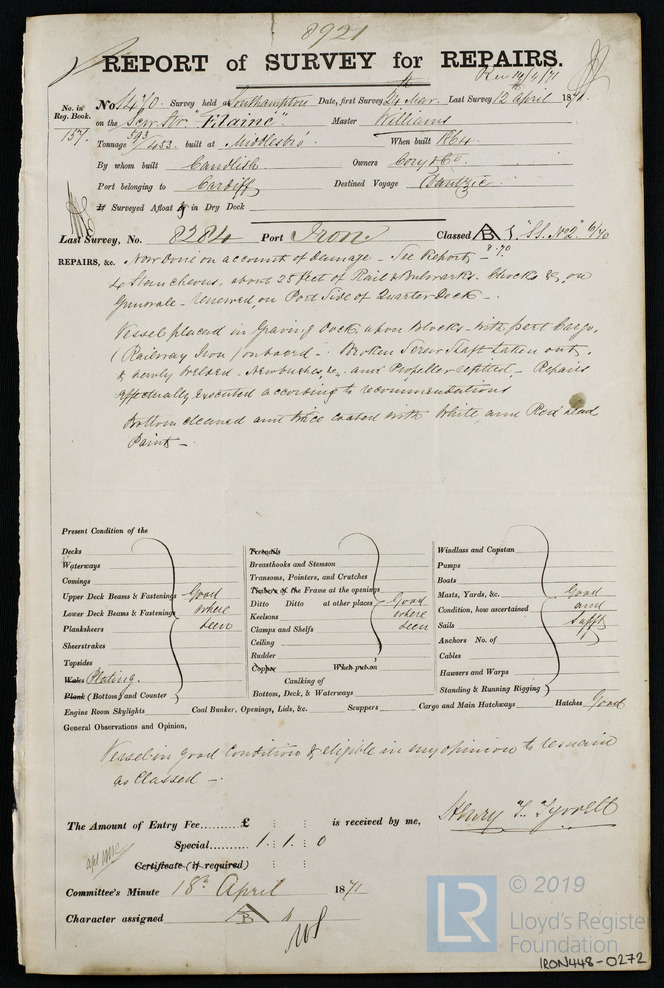 8921
REPORT of SURVEY for REPAIRS.
Rec 14/4/71
No. in Reg. Book. No. 1470. Survey held at Southampton Date, first Survey 24 Mar. Last Survey 12th April 1871.
157. on the Scrw Str. "Elaine" Master Williams
Tonnage 593/453 built at Middlesbro' When built 1864.
By whom built Candlish Owners Cory & Co.
Port belonging to Cardiff Destined Voyage Dantzic
If Surveyed Afloat or in Dry Dock
Last Survey, No. 8284 Port Iron Classed B "S.S. No 2" 6/70
8.70
REPAIRS, &c. Now Done on account of damage - See Report, -
4 Stanchions, about 25 feet of Rail & Bulwarks. Chocks &c, on
Gunwale - renewed, on Port Side of Quarter Deck -.
Vessel placed in Graving Dock, upon Blocks - with part Cargo,
(Railway Iron) onboard -. Broken Screw Shaft taken out,
& newly welded. New bushes, &c, and Propeller refitted - Repairs
effectually executed according to recommendations
Bottom cleaned and twice coated with White, and Red Lead
Paint -.
Present Condition of the
Decks
Waterways
Comings
Upper Deck Beams & Fastenings Good
Lower Deck Beams & Fastenings where
Planksheers seen
Sheerstrakes
Topsides
Wales Plating.
Plank (Bottom) and Counter
Treenails
Breasthooks and Stemson
Transoms, Pointers, and Crutches
Timbers of the Frame at the openings
Ditto Ditto at other places Good
Keelsons where
Clamps and Shelfs seen
Ceiling
Rudder
Copper When put on
Caulking of
Bottom, Deck, & Waterways
Windlass and Capstan
Pumps
Boats
Masts, Yards, &c. Good
Condition, how ascertained and
Sails Sufft
Anchors No. of
Cables
Hawsers and Warps
Standing & Running Rigging
Engine Room Skylights Coal Bunker, Openings, Lids, &c. Scuppers Cargo and Main Hatchways Hatches Good
General Observations and Opinion,
Vessel in good Condition & eligible in my opinion to remain
as Classed -.
The Amount of Entry Fee......... £ : : is received by me, Henry T. Tyrrell
Special......... 1 . 1 . 0
Certificate (if required)
Committee's Minute 18th April 1871
Character assigned B
LR © 2019
Lloyd's Register
Foundation
IRON448-0272